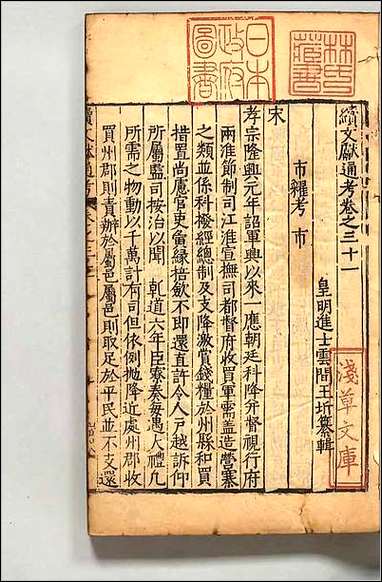 續文獻通考卷之三十一
皇明進士雲間王圻纂輯
市糴考 市
宋
孝宗隆興元年詔軍興以來一應朝廷科降并督視行府
兩淮節制司江淮宣撫司都督府收買軍需蓋造營寨
之類並係科撥經總制及支降激賞錢糧於州縣和買
措置尚慮官吏夤緣掊斂不即還直許令人戶越訴仰
所屬監司按治以聞 乾道六年臣寮奏每遇大禮凡
所需之物動以千萬計有司但依例拋降近處州郡收
買州郡則責辦於屬邑屬邑則取足於平民並不支還
日本政府圖書
林氏藏書
淺草文庫
續文獻通考